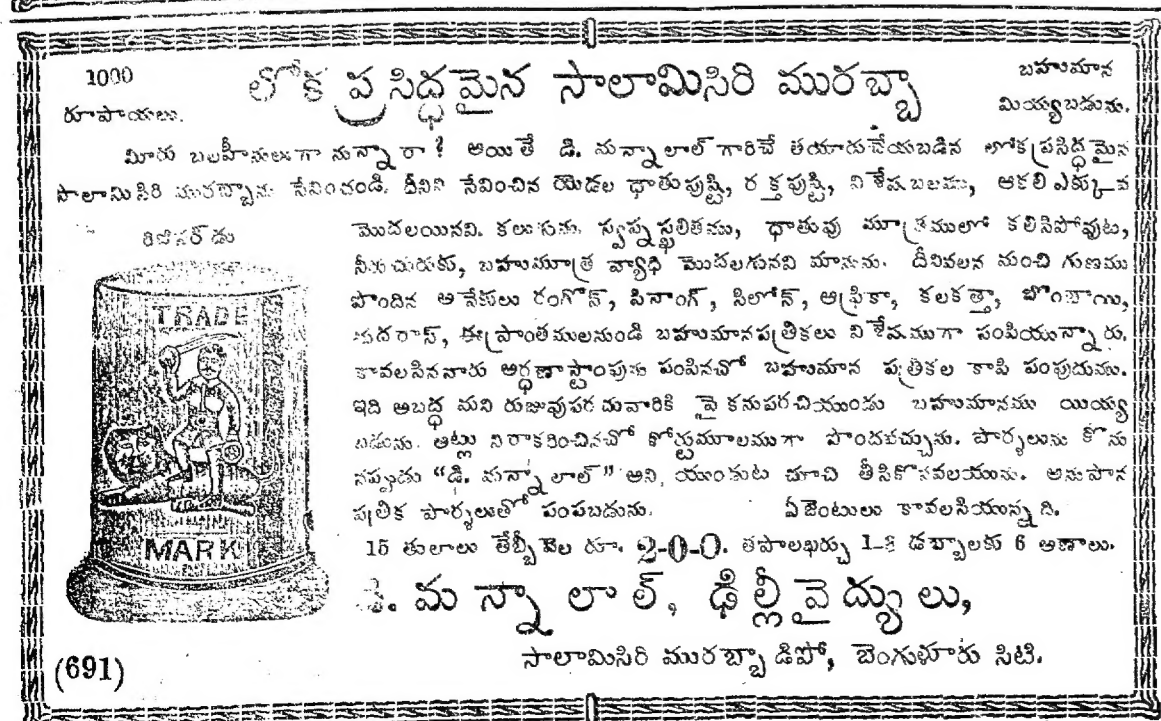 1000 లోక ప్రసిద్ధమైన సాలామిసిరి మురబ్బా బహుమాన
రూపాయలు. మియ్యబడును.
మీరు బలహీనులుగా నున్నారా? అయితే డి. మన్నాలాల్ గారిచే తయారుచేయబడిన లోకప్రసిద్ధమైన
సాలామిసిరి మురబ్బాను సేవించండి. దీనిని సేవించిన యెడల ధాతుపుష్టి, రక్తపుష్టి, విశేషబలము, ఆకలి ఎక్కువ
మొదలయినవి. కలుగును. స్వప్నస్ఖలితము, ధాతువు మూత్రములో కలిసిపోవుట,
రిజిష్టర్డు
నీరుచురుకు, బహుమూత్ర వ్యాధి మొదలగునవి మానును. దీనివలన మంచి గుణము
పొందిన అనేకులు రంగోన్, పినాంగ్, సిలోన్, ఆఫ్రికా, కలకత్తా, బొంబాయి,
మదరాస్, ఈప్రాంతములనుండి బహుమానపత్రికలు విశేషముగా పంపియున్నారు.
కావలసినవారు అర్ధణాస్టాంపును పంపినచో బహుమాన పత్రికల కాపి పంపుదుము.
ఇది అబద్ధమని రుజువుపరచువారికి పై కనుపరచియుండు బహుమానము యియ్య
బడును. అట్లు నిరాకరించినచో కోర్టుమూలముగా పొందవచ్చును. పార్శలును కొను
నప్పుడు "డి. మన్నాలాల్" అని, యుండుట చూచి తీసికొనవలయును. అనుపాన
పత్రిక పార్శలుతో పంపబడును. ఏజెంటులు కావలసియున్నది.
15 తులాలు డబ్బీ వెల రూ. 2-0-0. తపాలఖర్చు 1-3 డబ్బాలకు 6 అణాలు.
TRADE
MARK
డి. మన్నాలాల్, ఢిల్లీవైద్యులు,
సాలామిసిరి మురబ్బా డిపో, బెంగుళూరు సిటి.
(691)